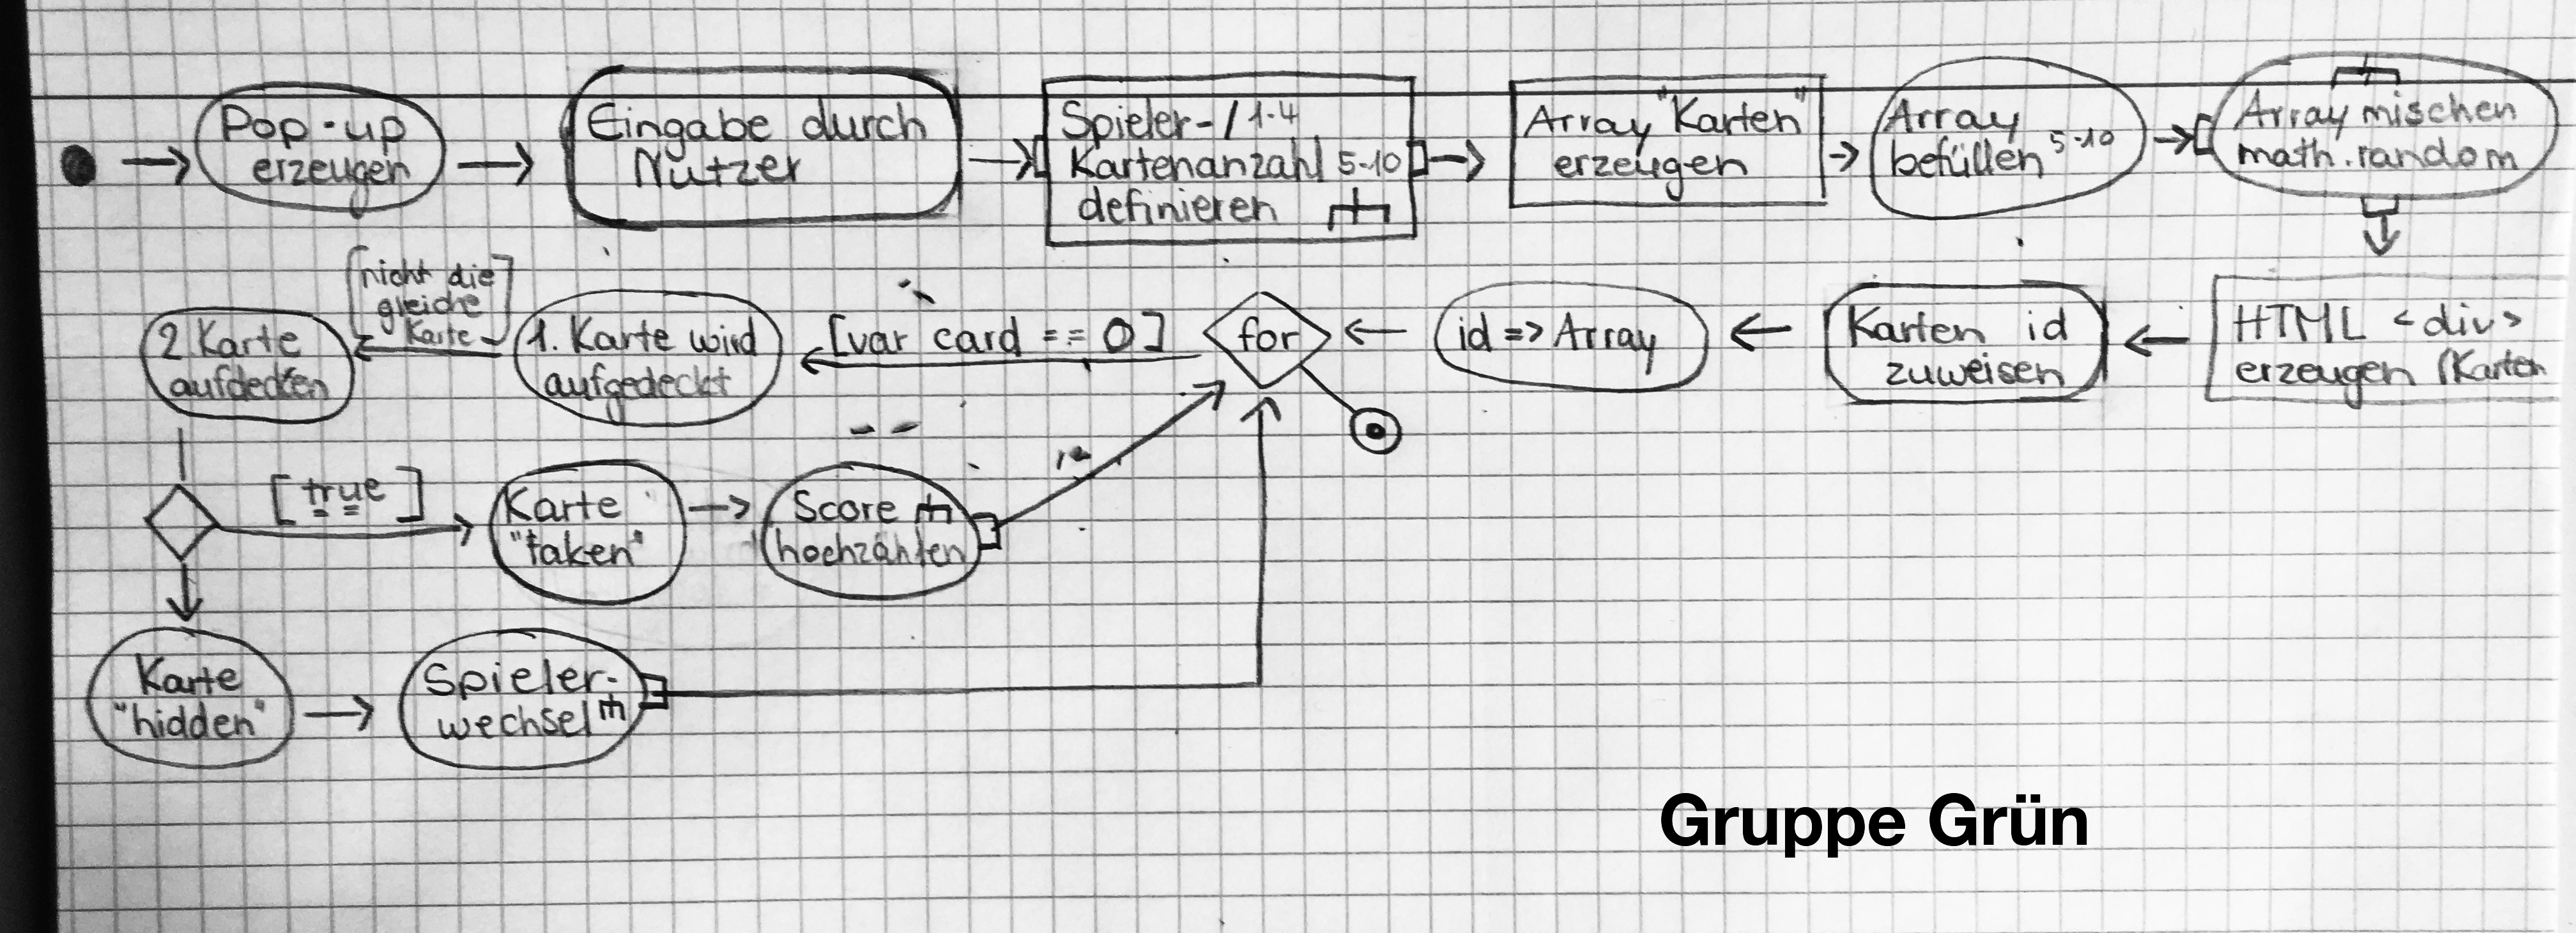 Pop-up
erzeugen
Eingabe durch
Nutzer
Spieler-/ 1-4
Kartenanzahl 5-10
definieren
Array "Karten"
erzeugen
Array
befüllen 5-10
Array mischen
math.random
HTML <div>
erzeugen (Karten
Karten id
zuweisen
id => Array
for
[var card == 0]
1. Karte wird
aufgedeckt
[nicht die
gleiche
Karte]
2. Karte
aufdecken
[true]
Karte
"taken"
Score
hochzählen
Karte
"hidden"
Spieler-
wechsel
Gruppe Grün